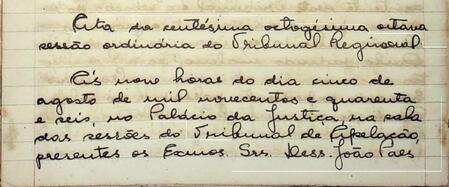 Ata da centésima octogésima oitava
sessão ordinária do Tribunal Regional
Ás nove horas do dia cinco de
agosto de mil novecentos e quarenta
e seis, no Palácio da Justiça, na sala
das sessões do Tribunal de Apelação,
presentes os Exmos. Srs. Dess. João Paes